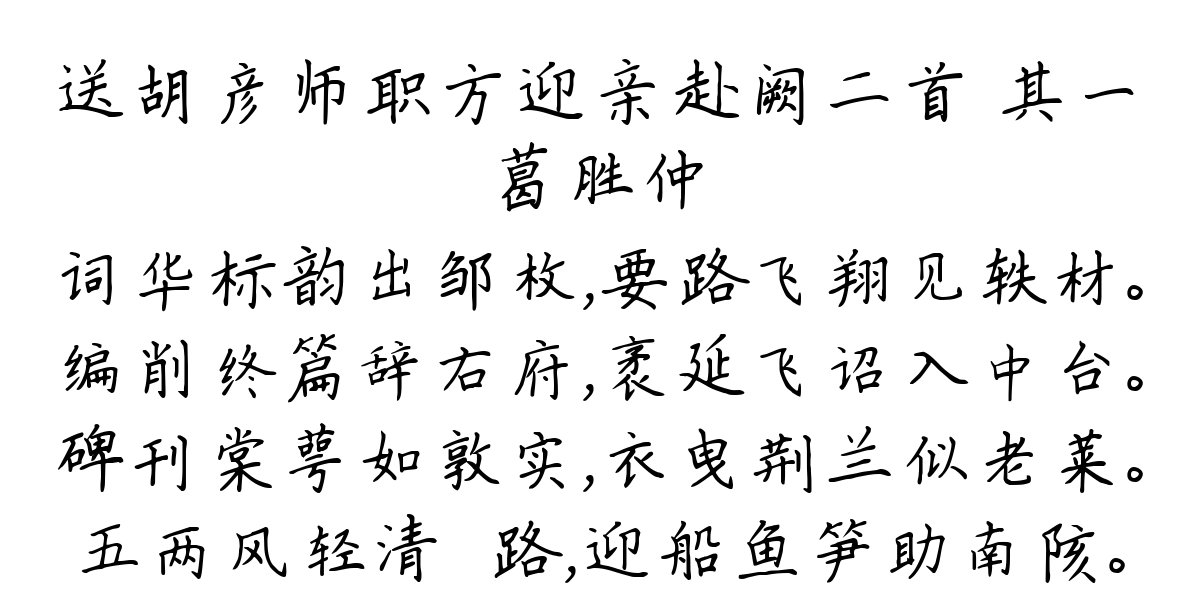 送胡彦师职方迎亲赴阙二首 其一
葛胜仲
词华标韵出邹枚,要路飞翔见轶材。
编削终篇辞右府,袤延飞诏入中台。
碑刊棠萼如敦实,衣曳荆兰似老莱。
五两风轻清 路,迎船鱼笋助南陔。